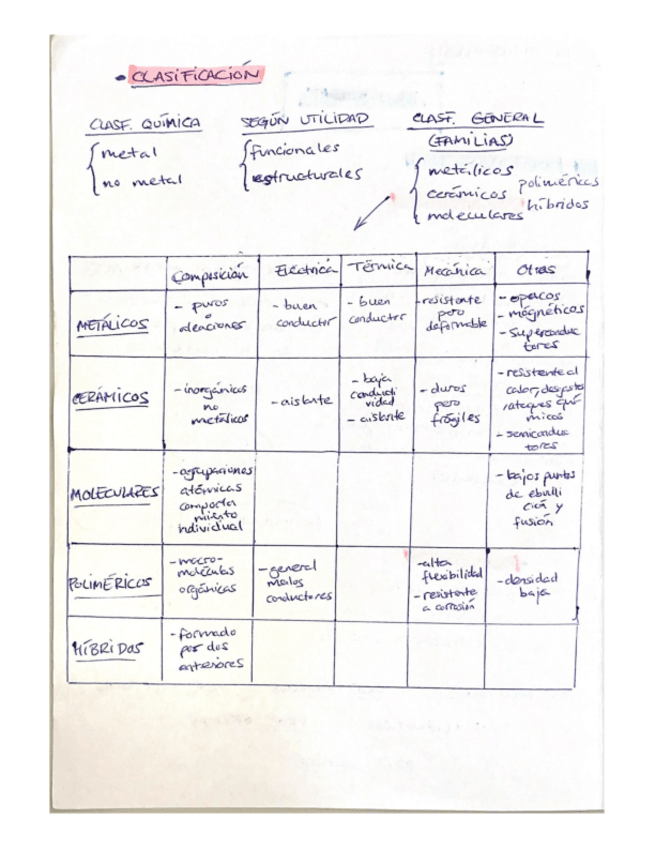 • CLASIFICACIÓN
CLASF. QUÍMICA
metal
no metal
SEGÚN UTILIDAD
funcionales
estructurales
CLASF. GENERAL
(FAMILIAS)
metálicos
cerámicos
moleculares
poliméricos
híbridos
Composición Eléctrica Térmica Mecánica Otras
METÁLICOS
- puros
o
aleaciones
- buen
conductor
- buen
conductor
- resistente
pero
deformable
- opacos
- magnéticos
- Superconduc
tores
CERÁMICOS
- inorgánicos
no
metálicos
- aislante
- baja
conducti
vidad
- aislante
- duros
pero
frágiles
- resistente al
calor, desgaste
y ataques quí-
micos
- semiconduc
tores
MOLECULARES
- agrupaciones
atómicas
comporta
miento
individual
- bajos puntos
de ebulli
ción y
fusión
POLIMÉRICOS
- macro-
moléculas
orgánicas
- general
malos
conductores
- alta
flexibilidad
- resistente
a corrosión
- densidad
baja
HÍBRIDOS
- formado
por dos
anteriores